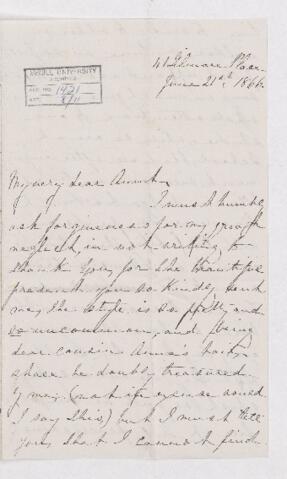 McGILL UNIVERSITY
ARCHIVES
ACC. NO. 1421
REF.
Gilmore Place
June 21st, 1866.
My very dear Aunt,
I must humbly
ask forgiveness for my
neglect, in not writing to
thank you, for the beautiful
present you so kindly sent
me, the style is so pretty and
so uncommon, and being
dear cousin Anna's hair,
shall be doubly treasured
by me; (not if
I say this) but I must tell
you, that I cannot find